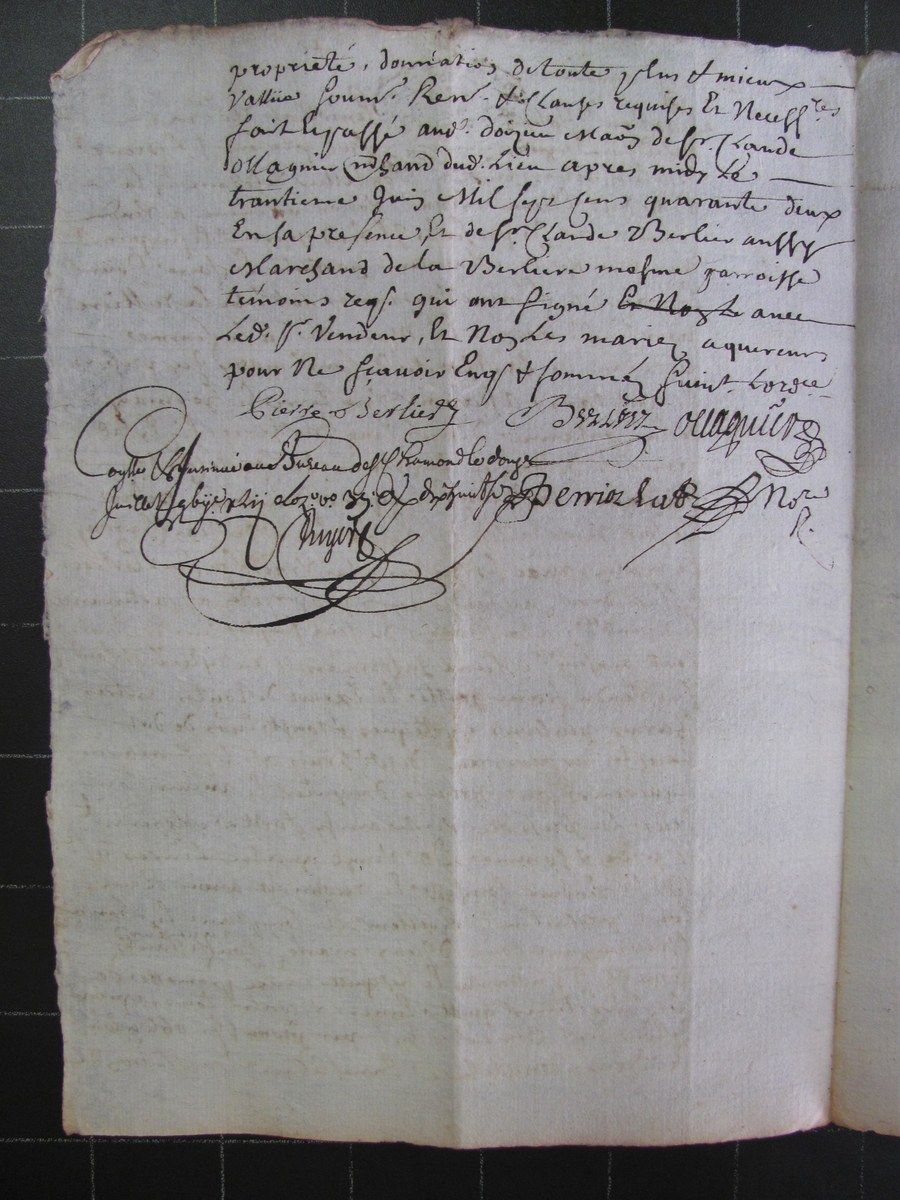 propriété, donnation de toute plus & mieux
vallüe soumn. Renn. & Clauses requises Et Necessres
fait Et passé aud. doizieu Maon de sr. Claude
ollagnier mchand dud. Lieu apres midy Le
trantieme Juin Mil sept cens quarante deux
En sa presence, Et de sr. Claude Berlier aussy
Marchand de la Berliere mesme parroisse
témoins reqs. qui ont signé Et Noyre avec
Led. sr. Vendeur, Et Non Les mariez aquereurs
pour Ne sçavoir Enqs & sommez suivt. Lordce
Pierre Berlier
Berlier ollagnier
au Bureau de st Chamond le douze
Juillet
Not.re
R.